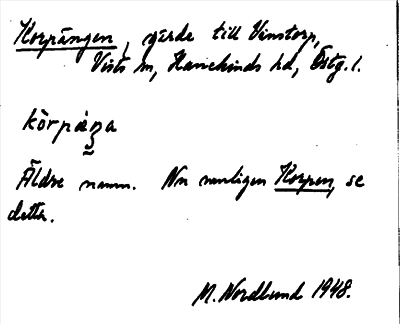 Korpängen, gärde till Vinstorp,
Vists sn, Hanekinds hd, Östg. l.
kòrpäŋa
Äldre namn. Nu vanligen Korpen, se
detta.
M. Nordlund 1948.